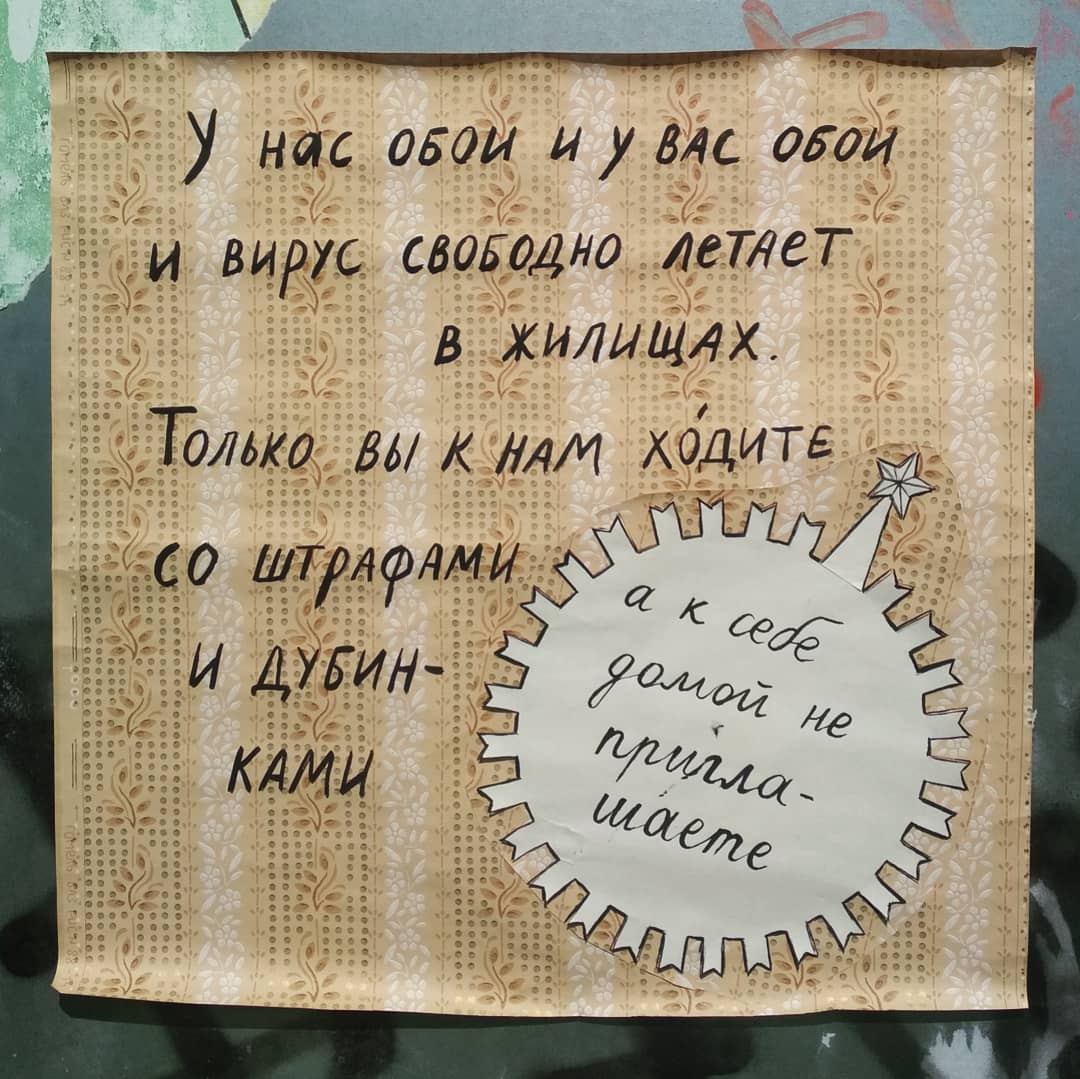 У нас обои и у вас обои
и вирус свободно летает
в жилищах.
Только вы к нам хо́дите
со штрафами
и дубин-
ками
а к себе
домой не
пригла-
шаете